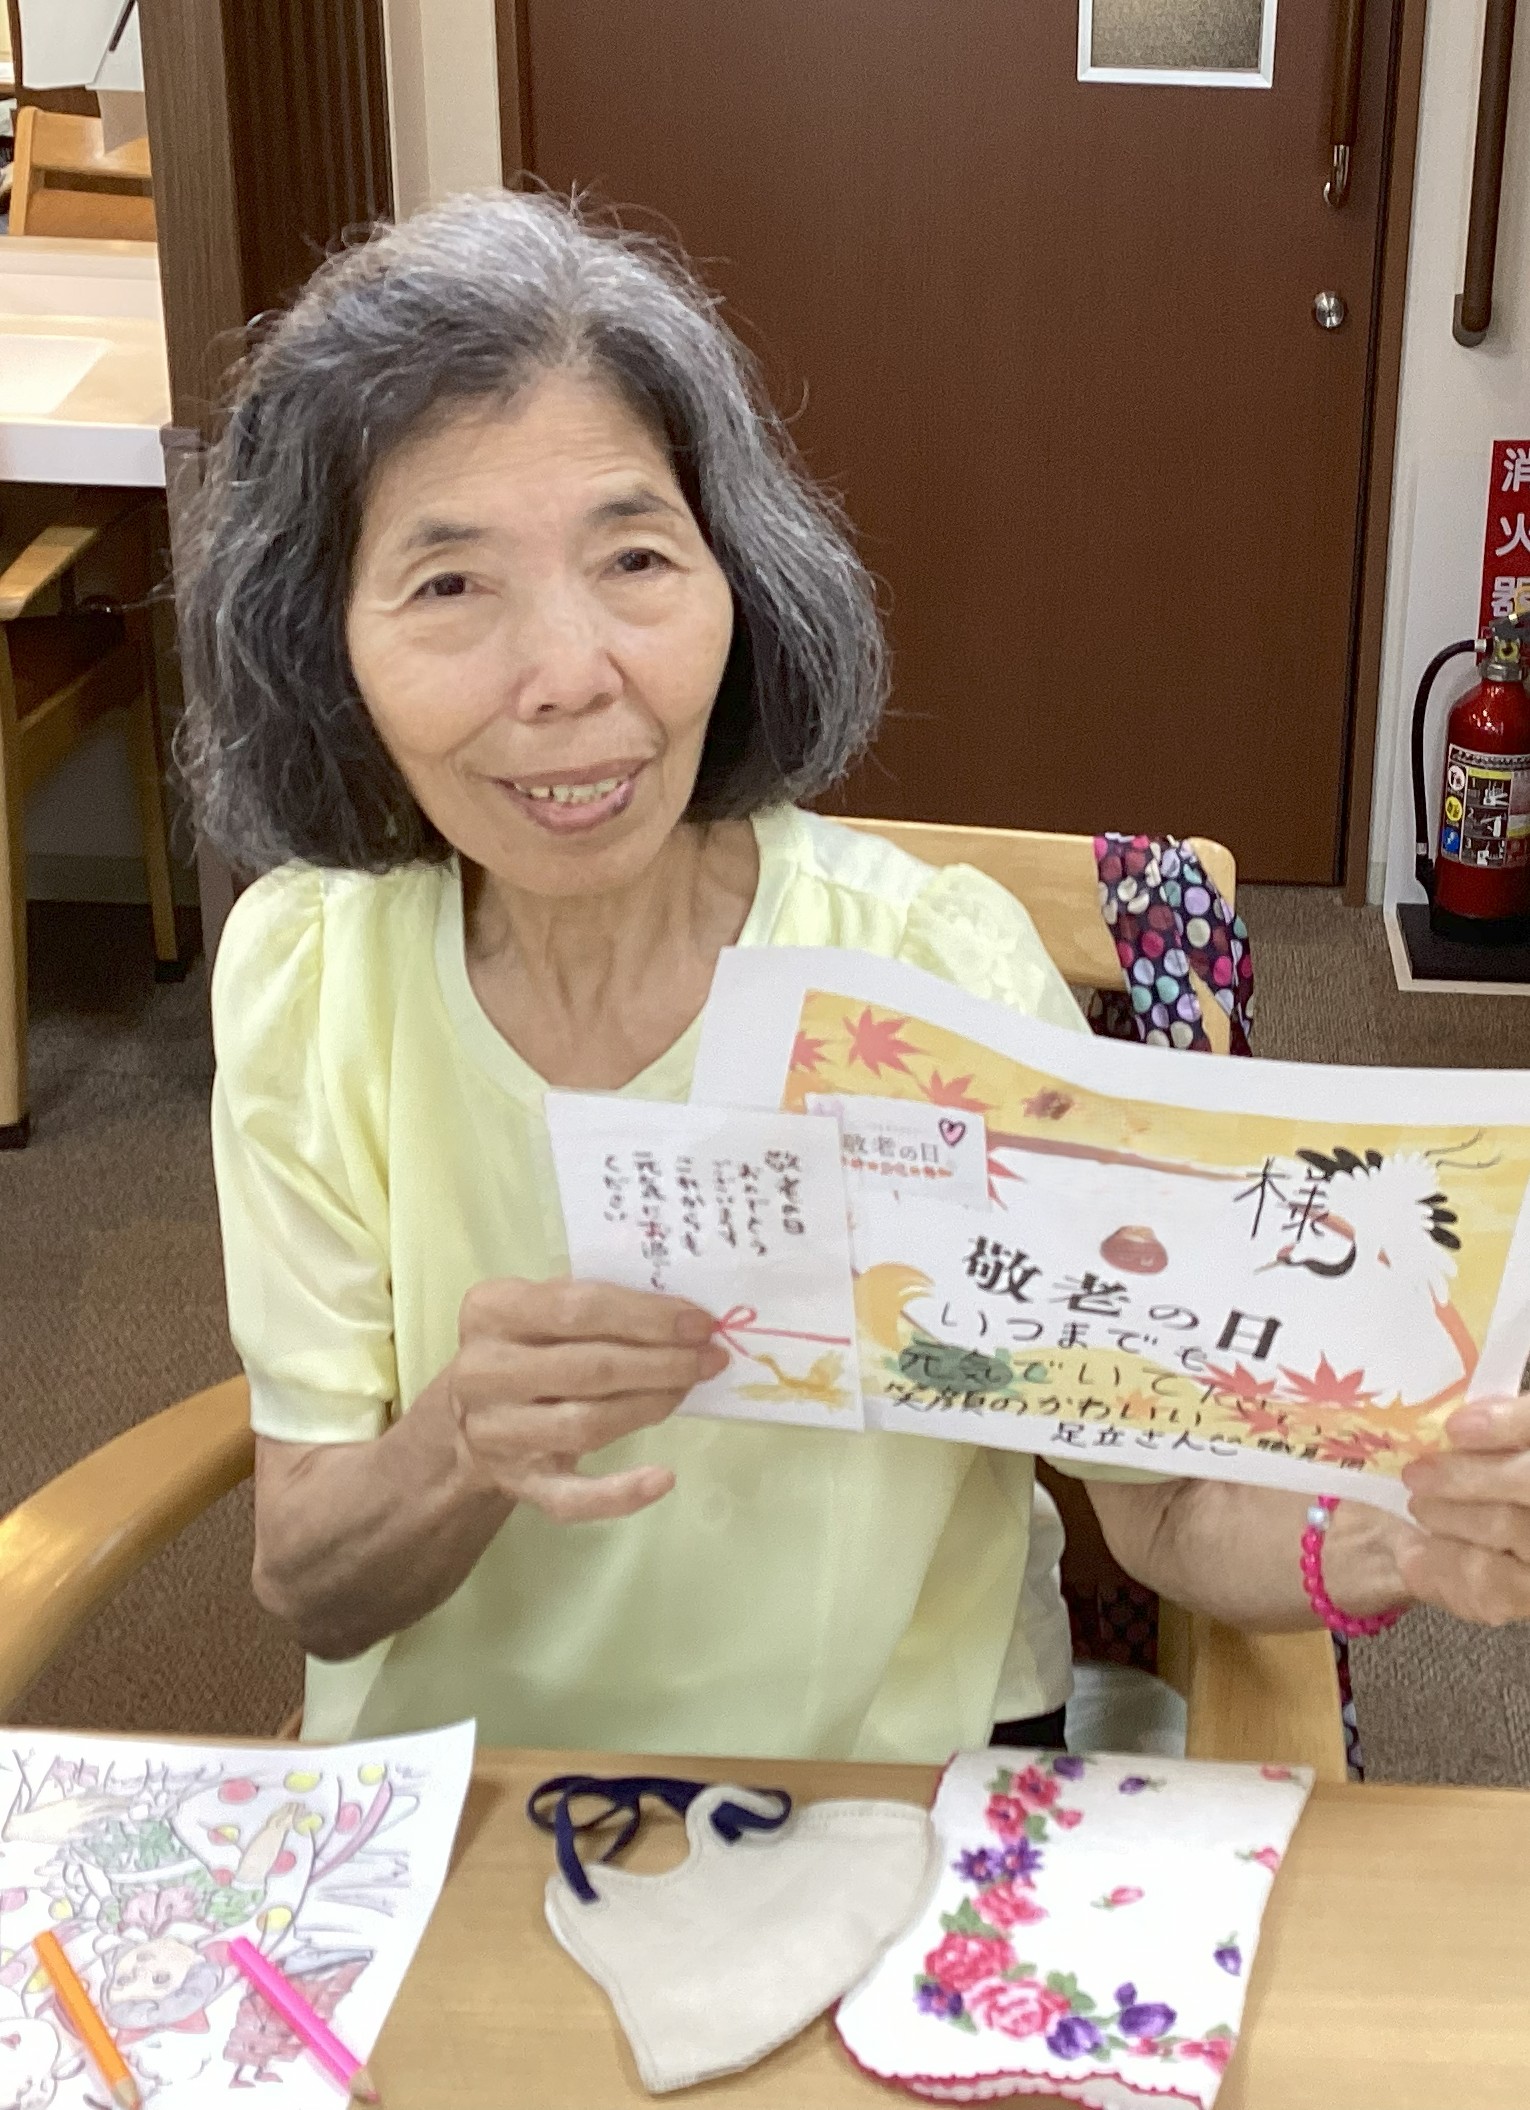 消
火
器
敬老の日
おめでとう
ございます
これからも
元気にお過ごし
ください
敬老の日
様
敬老の日
いつまでも
元気でいて
笑顔のかわいい
足立さんへ 職員一同